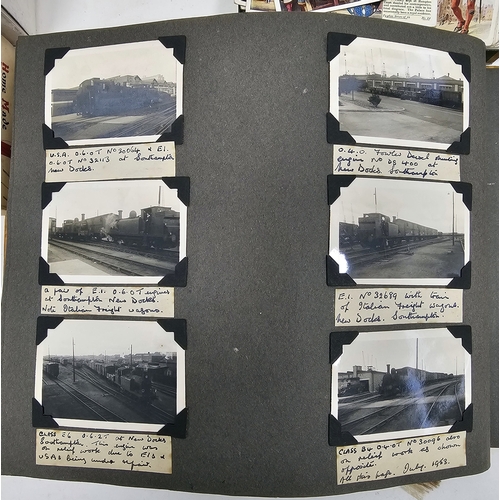 Home Made
U.S.A. 0.6.0T Nº 30064 & E1.
0.6.0T Nº 32113 at Southampton
New Docks.
a pair of E.1. 0.6.0T engines
at Southampton New Docks.
Note Italian freight wagons.
CLASS E6 0.6.2T at New Docks
Southampton This engine was
on relief work due to E1s &
USAs being under repair.
0.4.0. Fowler Diesel Shunting
engine Nº DS 400 at
New Docks Southampton
E1. Nº 32689 with train
of Italian freight wagons.
New Docks. Southampton.
CLASS B4 0.4.0T Nº 30096 also
on relief work as shown
opposite.
All this page. July. 1953.